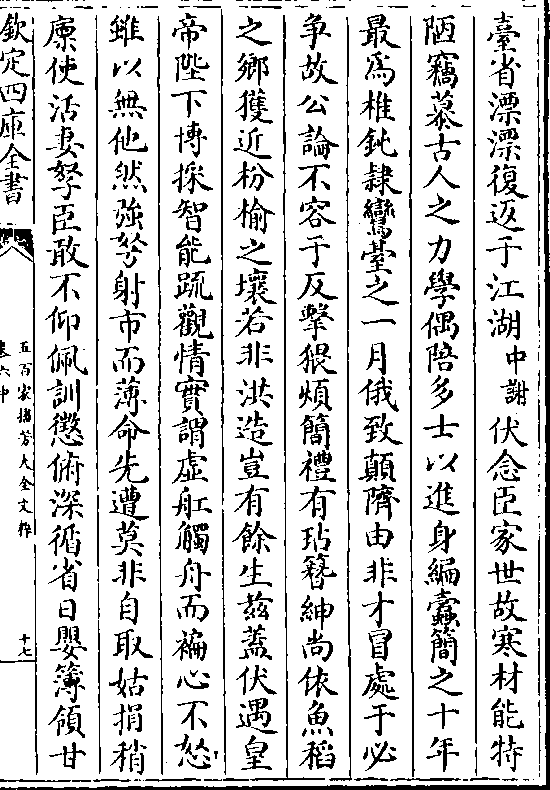 臺省漂漂復返于江湖中謝伏念臣家世故寒材能特
陋竊慕古人之力學偶陪多士以進身編蠹簡之十年
最為椎鈍隷鸞臺之一月俄致顛隮由非才冒處于必
争故公論不容于反擊猥煩簡禮有玷簪紳尚依魚稻
之鄉獲近枌榆之壤若非洪造豈有餘生兹蓋伏遇皇
帝陛下博採智能䟽觀情實謂虛舡觸舟而褊心不怒
雖以無他然強弩射市而薄命先遭莫非自取姑捐稍
廪使活妻孥臣敢不仰佩訓懲俯深循省日嬰簿領甘
欽定四庫全書
五百家播芳大全文粹
卷六中
十七